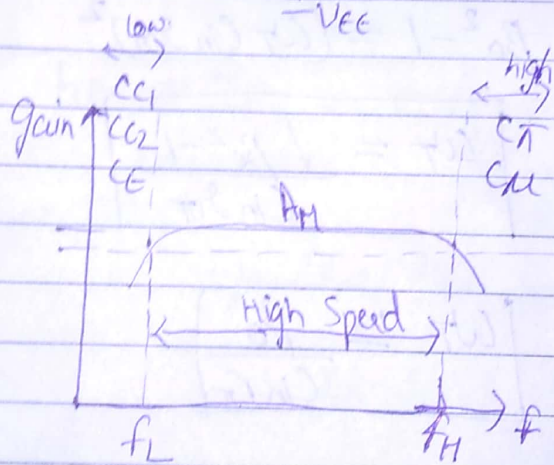 -VEE
low
high
CC1
gain
CC2
Cπ
CE
Cμ
AM
High Speed
fL
fH
f